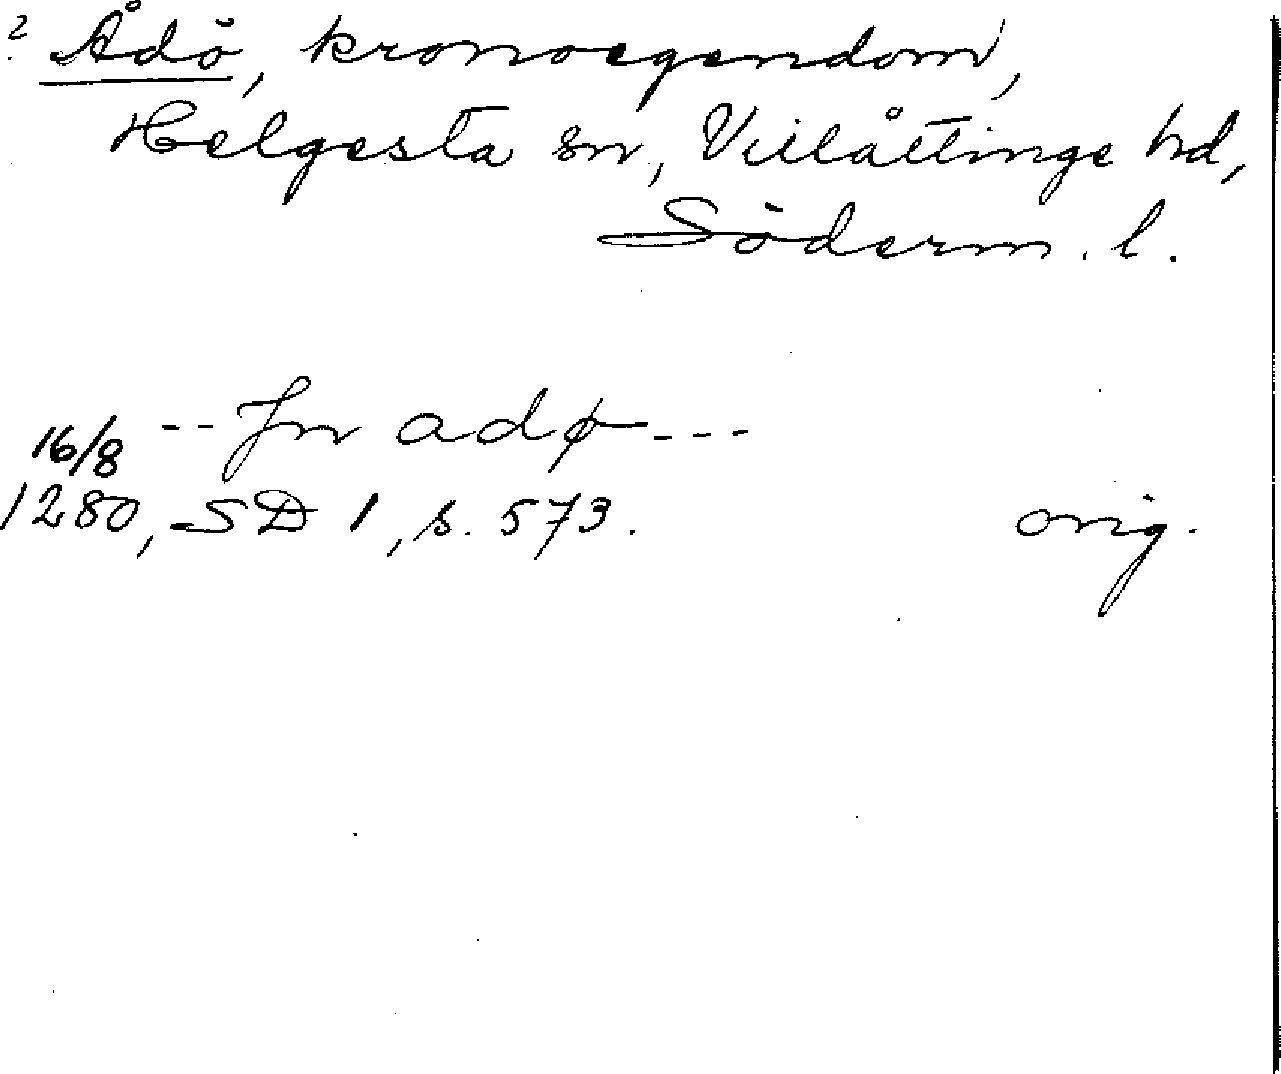 ? Ådö, kronoegendom,
Helgesta sn, Villåttinge hd,
Söderm. l.
-- Jn adø ---
16/8
1280, SD 1, s. 573. orig.